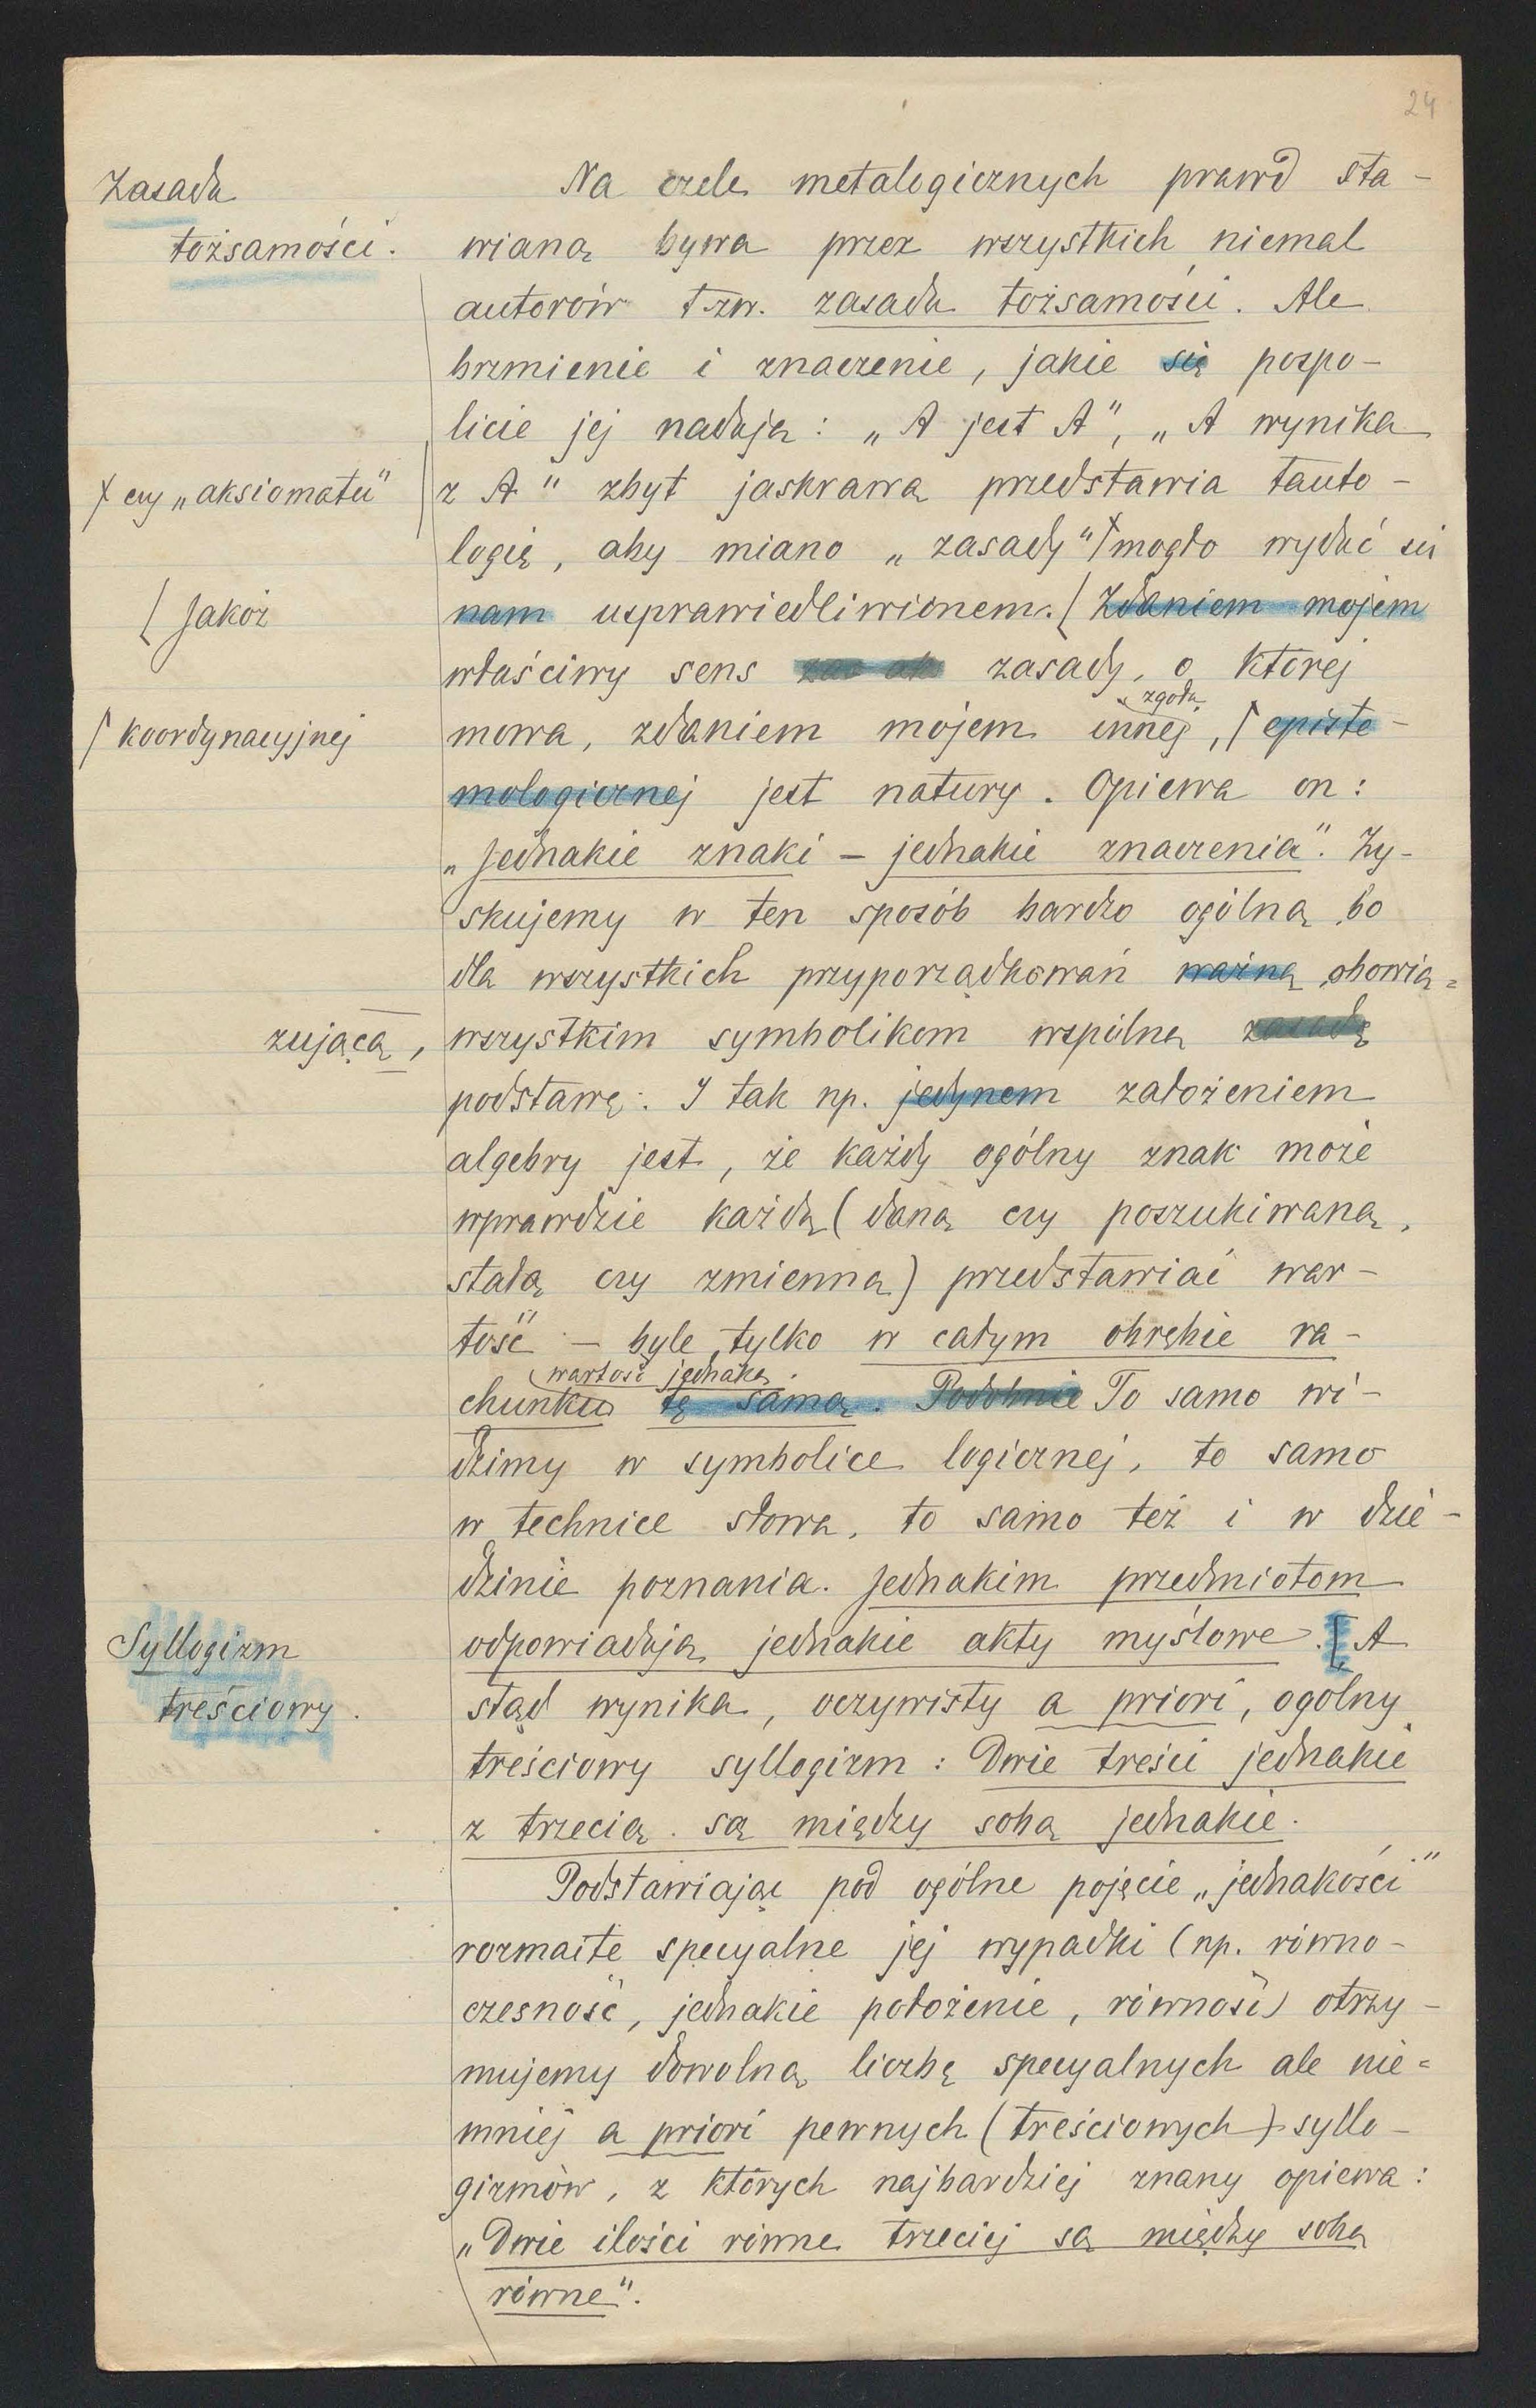 24
Zasada
tożsamości.
Na czele metalogicznych prawd sta-
wianą bywa przez wszystkich niemal
autorów tzw. zasada tożsamości. Ale
brzmienie i znaczenie, jakie się pospo-
licie jej nadaje: „A jest A", „A wynika
x czy „aksiomatu"
z A" zbyt jaskrawą przedstawia tauto-
logię, aby miano „zasady" x mogło wydać się
nam usprawiedliwionem. [ Zdaniem mojem
[ Jakoż
właściwy sens zasady, o której
zgoła
mowa, zdaniem mojem innej, ſ episte-
ſ koordynacyjnej
mologicznej jest natury. Opiewa on:
„Jednakie znaki – jednakie znaczenia". Zy-
skujemy w ten sposób bardzo ogólną, bo
dla wszystkich przyporządkowań ważną, obowią=
zującą,
wszystkim symbolikom wspólną zasadę
podstawę. I tak np. jedynem założeniem
algebry jest, że każdy ogólny znak może
wprawdzie każdą (daną czy poszukiwaną,
stałą czy zmienną) przedstawiać war-
tość – byle tylko w całym obrębie ra-
wartość jednaką
chunku tę samą. Podobnie To samo wi-
dzimy w symbolice logicznej, to samo
w technice słowa, to samo też i w dzie-
dzinie poznania. Jednakim przedmiotom
odpowiadają jednakie akty myślowe. [ A
Syllogizm
treściowy.
stąd wynika, oczywisty a priori, ogólny
treściowy syllogizm: Dwie treści jednakie
z trzecią są między sobą jednakie.
Podstawiając pod ogólne pojęcie „jednakości"
rozmaite specyalne jej wypadki (np. równo-
czesność, jednakie położenie, równość) otrzy-
mujemy dowolną liczbę specyalnych ale nie=
mniej a priori pewnych (treściowych) syllo-
gizmów, z których najbardziej znany opiewa:
„Dwie ilości równe trzeciej są między sobą
równe".